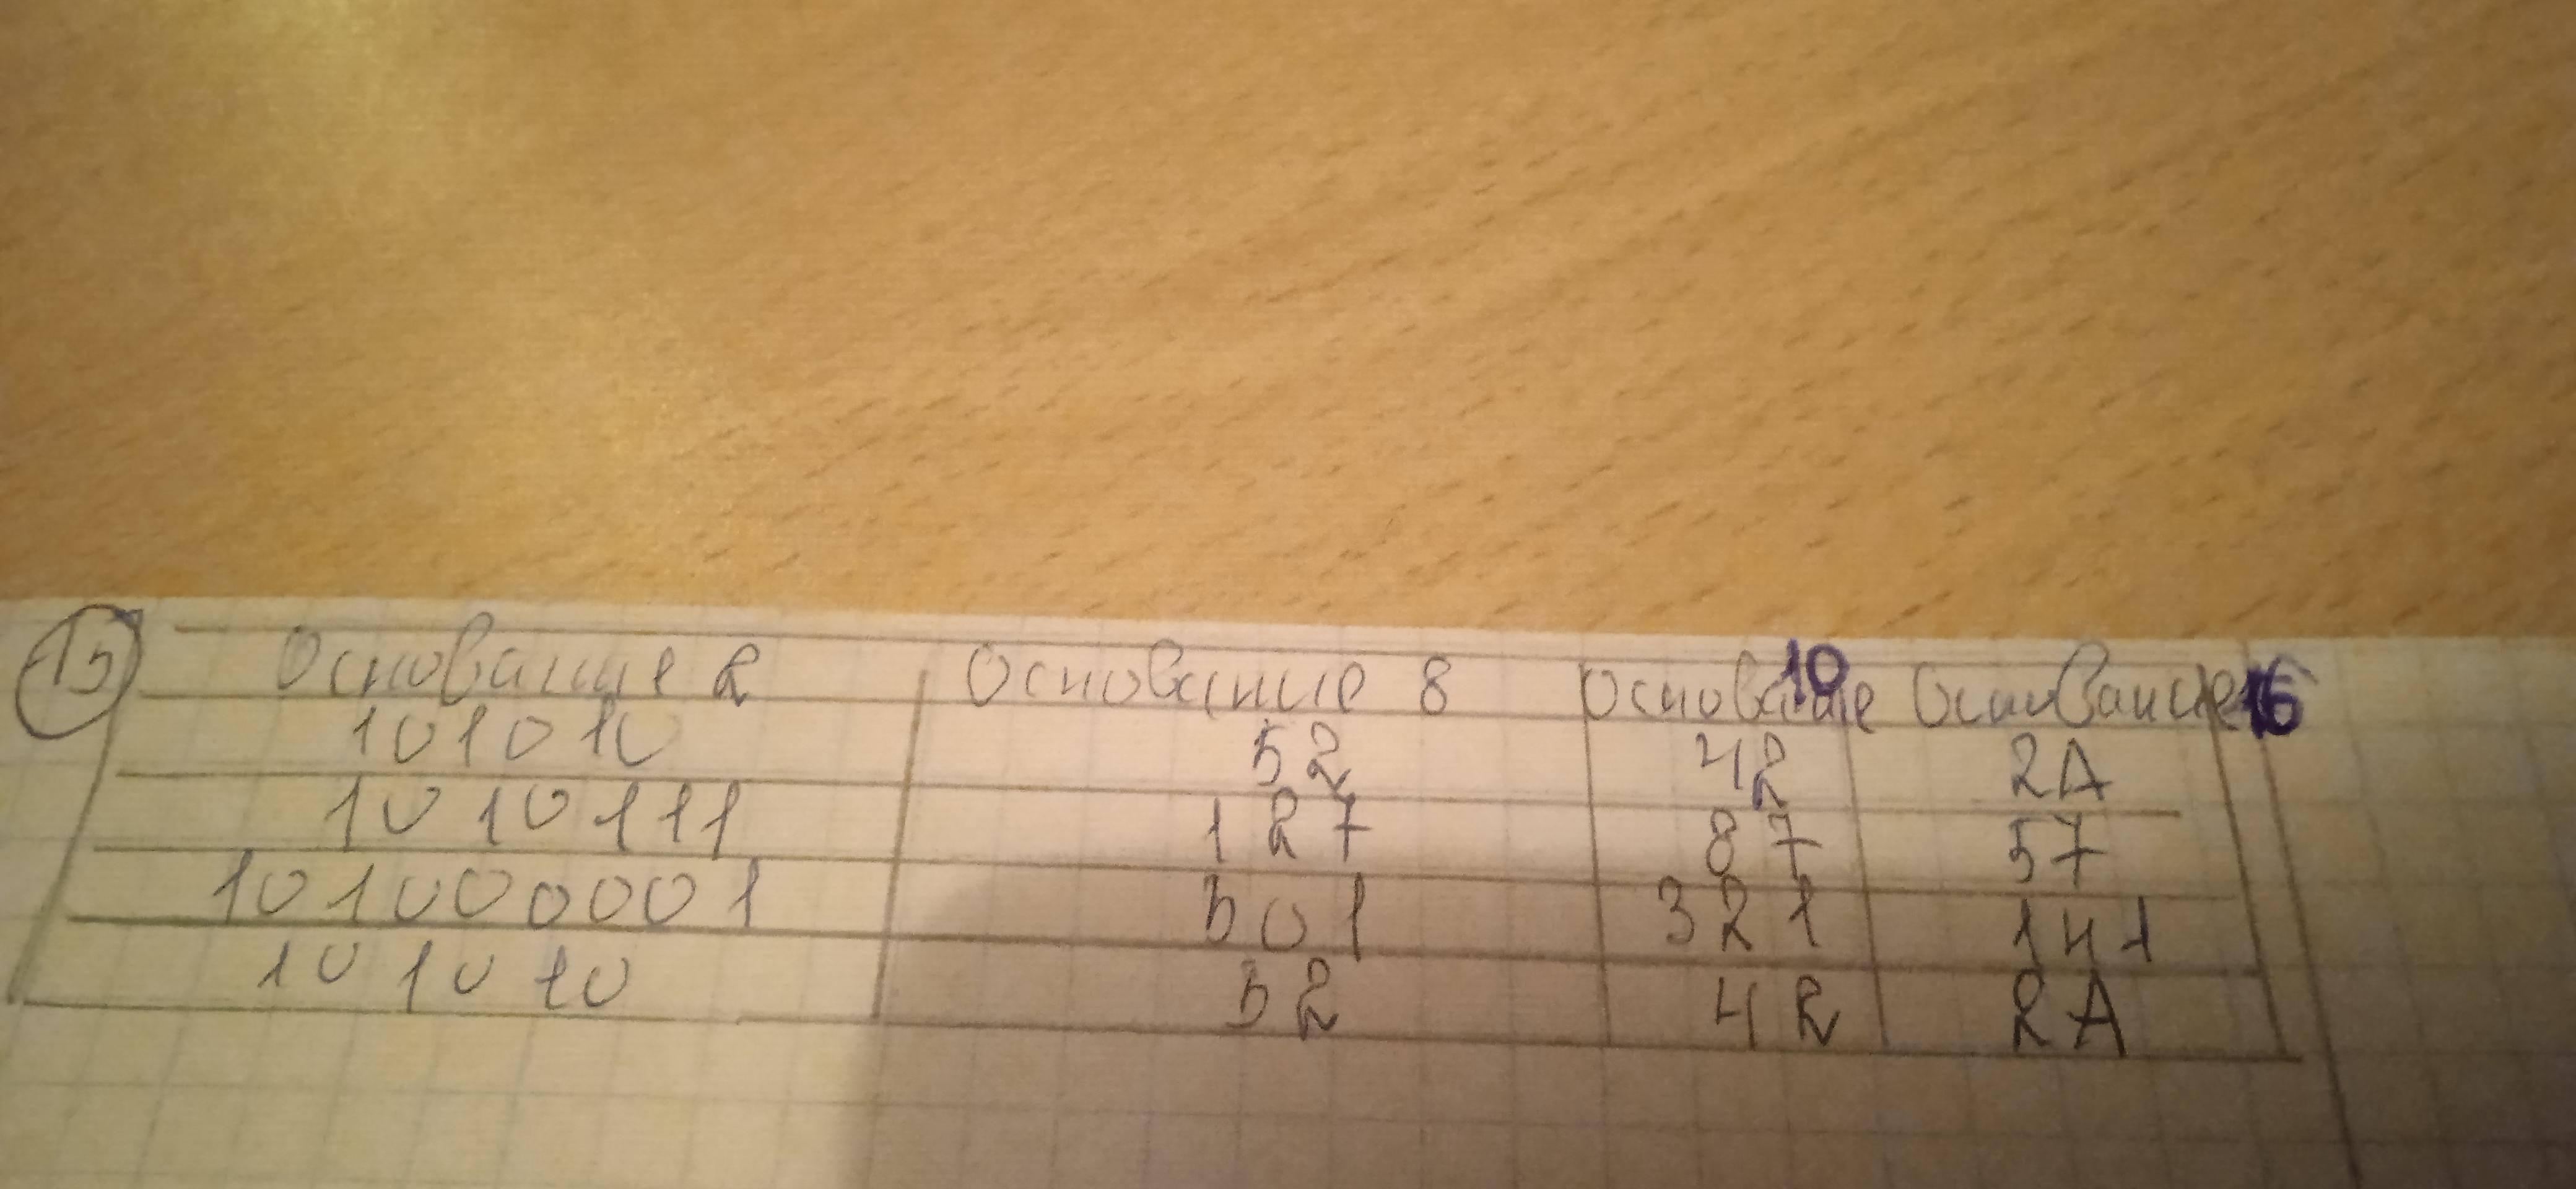 15 Основание 2 Основание 8 Основание 10 Основание 16
101010 52 42 2A
1010111 127 87 57
101000001 501 321 141
101010 52 42 2A